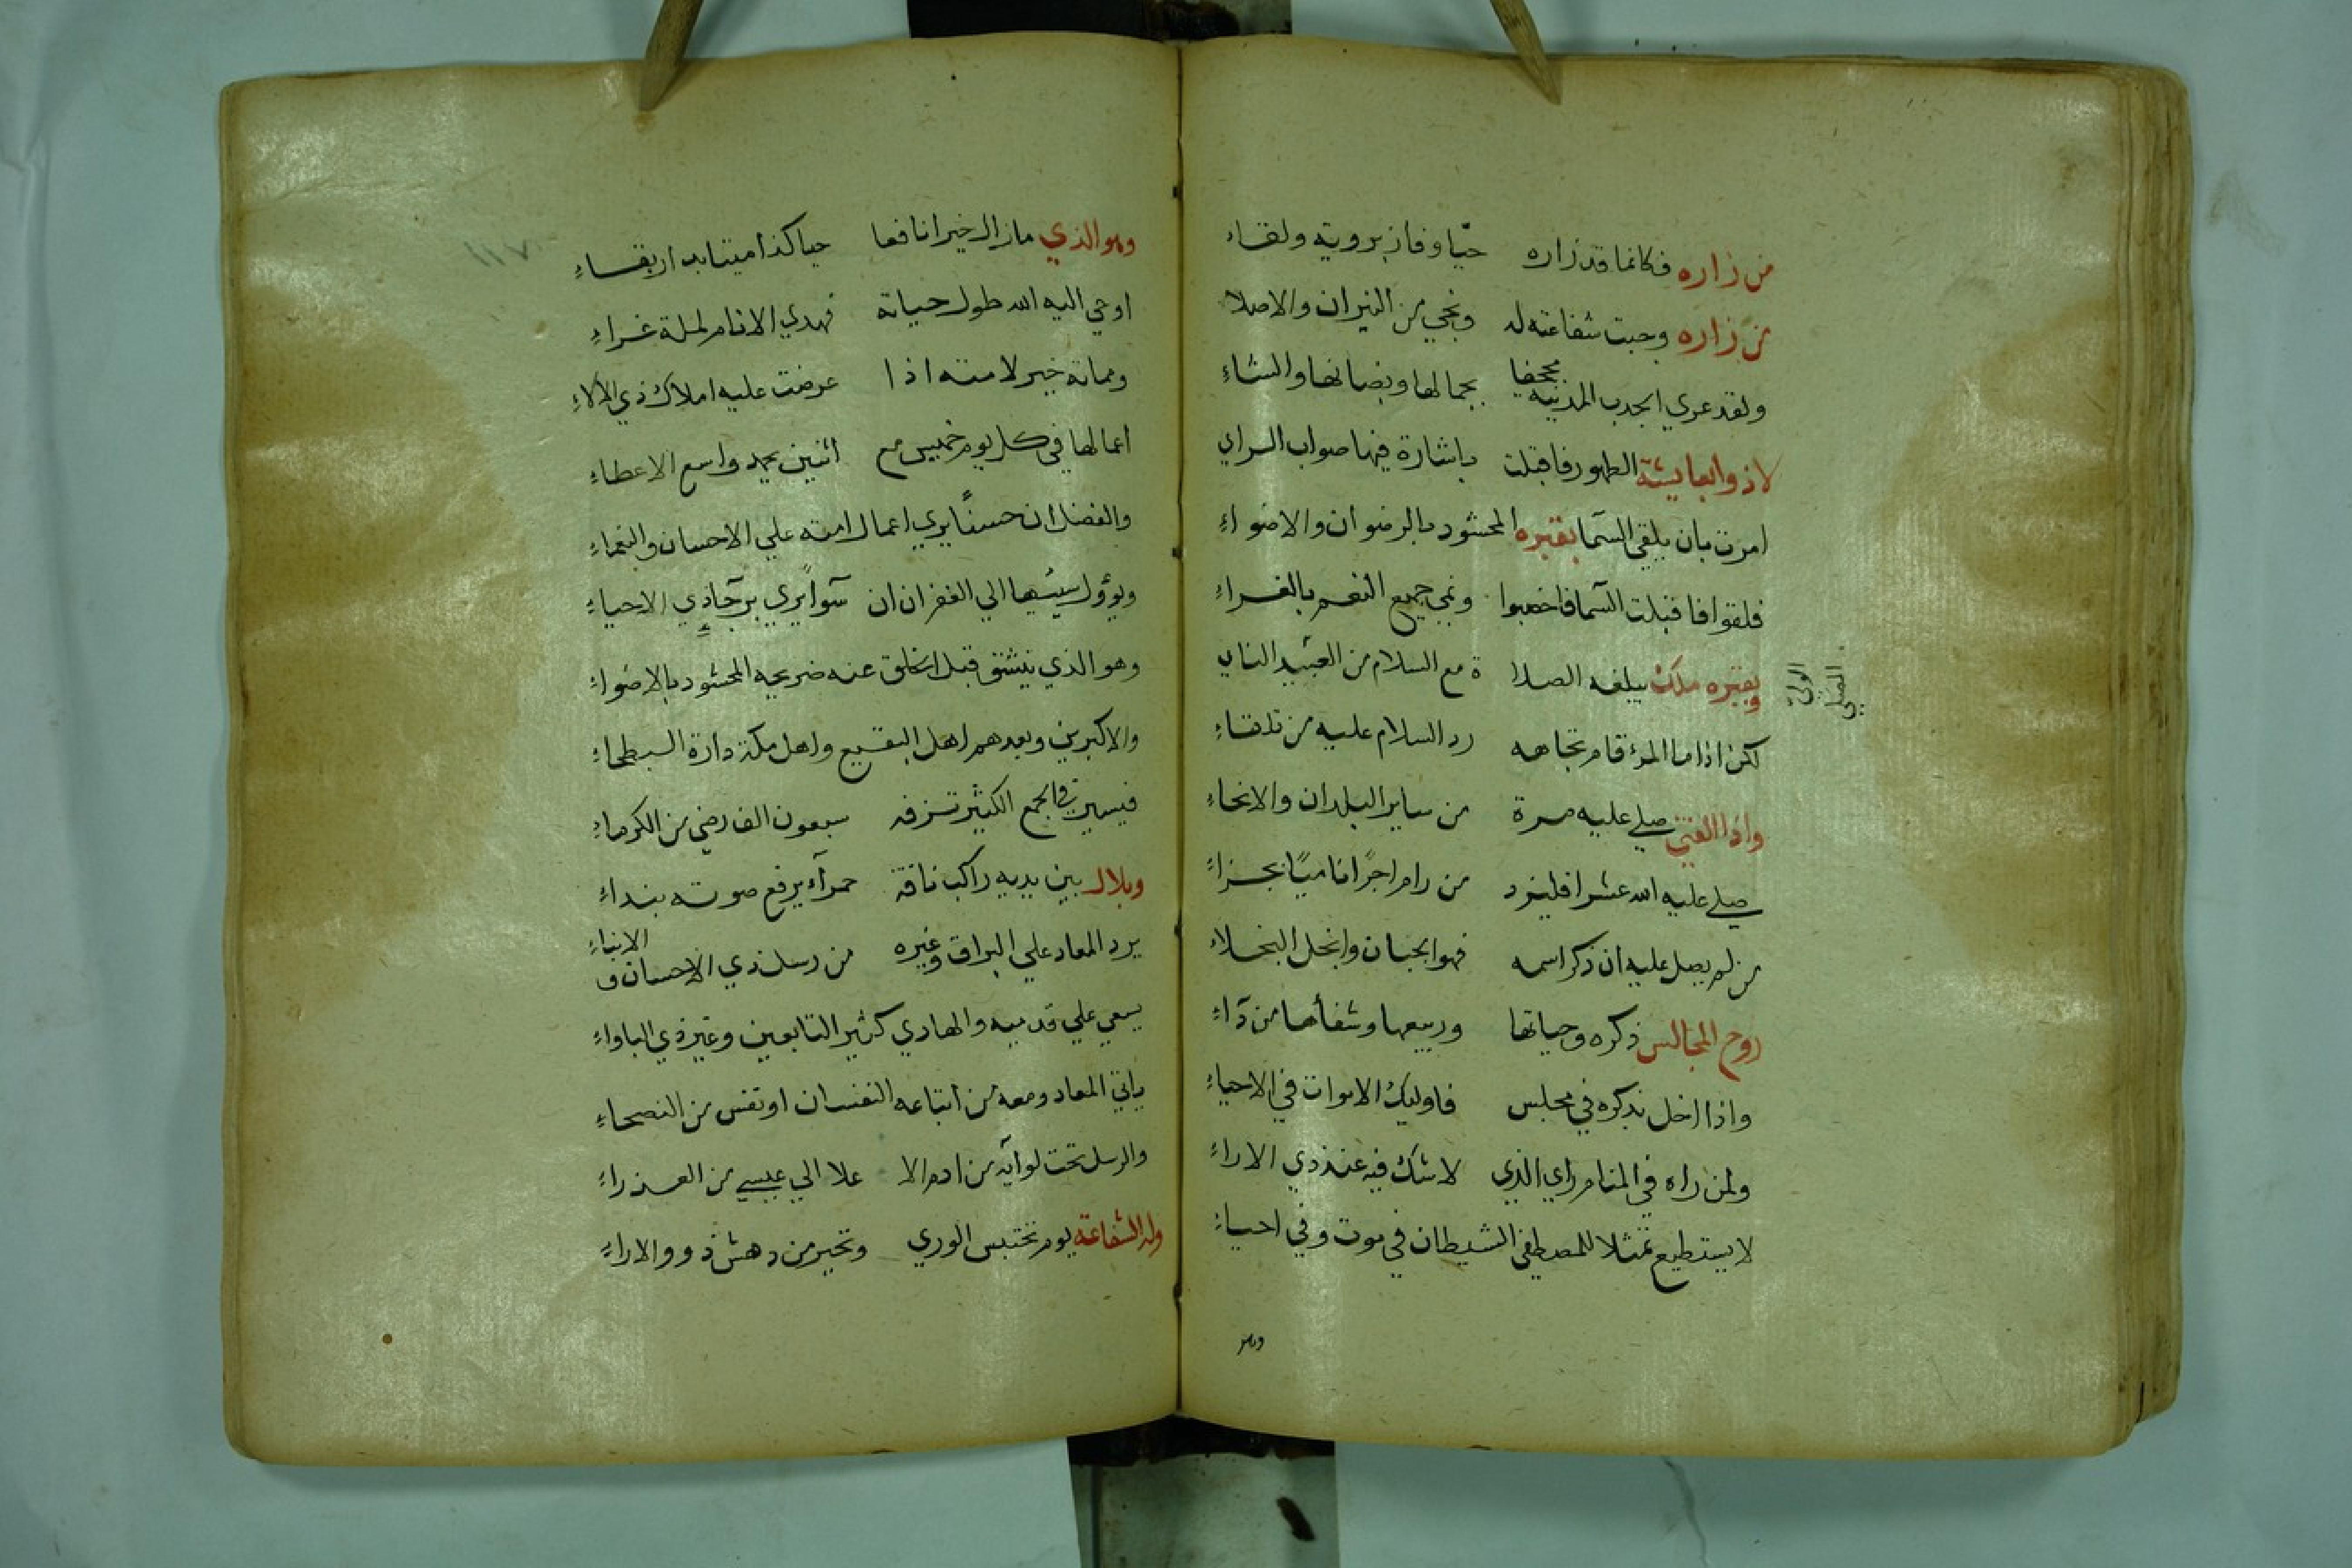 من زاره فكانما قد زاره حيّا وفاز برويته ولقاء
من زاره وجبت شفاعته له ونجي من النيران والاصلاء
ولقد عري الجدب المدنية مجحفا بجمالها وبضانها والشاء
لاذوا بعايشة الطهور فاقبلت باشارة فيها صواب الراي
امرت بان يلقي السّما بقبره المحشود بالرضوان والاضواء
فلقوا فاقبلت السما فاخصبوا ونمي جميع النعم بالغراء
وبقبره ملك يبلغه الصلا ة مع السلام من العبيد الناي
لكن اذا ما المرؤ قام تجاهه رد السلام عليه من تلقاء
واذا الفتي صلي عليه مرة من ساير البلدان والانحاء
صلي عليه الله عشرا فليزد من رام اجرًا ناميًا بجزاء
من لم يصل عليه ان ذكر اسمه فهو الجبان وابخل البخلاء
روح المجالس ذكره وحياتها وربيعها وشفأها من دآء
واذا اخل بذكره في مجلس فاوليك الاموات في الاحياء
ولمن راه في المنام راي الذي لا شك فيه عند ذي الاراء
لا يستطيع تمثلا للمصطفي الشيطان في موت وفي احياء
وهو الذي ما زال خيرا نافعا حيا كذا ميتا بدار بقاء
اوحي اليه الله طول حياته فهدي الانام لملة غراء
ومماته خير لامته اذا عرضت عليه املاك ذي الآلاء
اعمالها في كل يوم خميس مع اثنين يحمد واسع الاعطاء
والفضل ان حسنًا يري اعمال امته علي الاحسان والنعماء
ويؤول سيئها الي الغفران ان سوآ يري برجآء ذي الاحياء
وهو الذي ينشق قبل الخلق عنه ضريحه المحشود بالاضواء
والاكبرين وبعدهم اهل البقيع واهل مكة دارة البطحاء
فيسير في الجمع الكثير تزفه سبعون الفا رضي من الكرماء
وبلال بين يديه راكب ناقة حمرآء يرفع صوته بنداء
يرد المعاد علي البراق وغيره من رسل ذي الاحسان و الانباء
يسعي علي قدميه والهادي كثير التابعين وغير ذي الباواء
ياتي المعاد ومعه من اتباعه النفسان او نفس من النصحاء
والرسل تحت لوآيه من ادم الا علا الي عيسي من العذراء
وله الشفاعة يوم تحتبس الوري وتحير من دهش ذوو الاراء